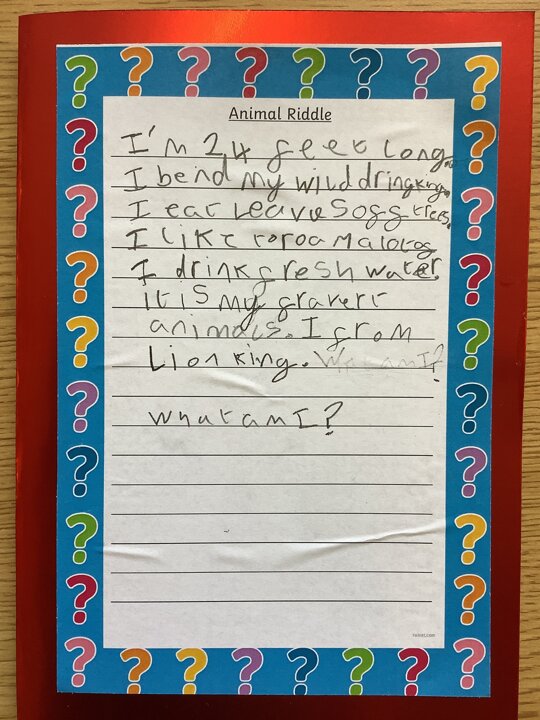 Animal Riddle
I'm 24 feet long.
I bend my wild dringking.
I eat leavus ogg trees.
I like to roam a lot
I drink fresh water
it is my gravert
animals. I from
Lion king. What am I?
what am I?
twinkl.com